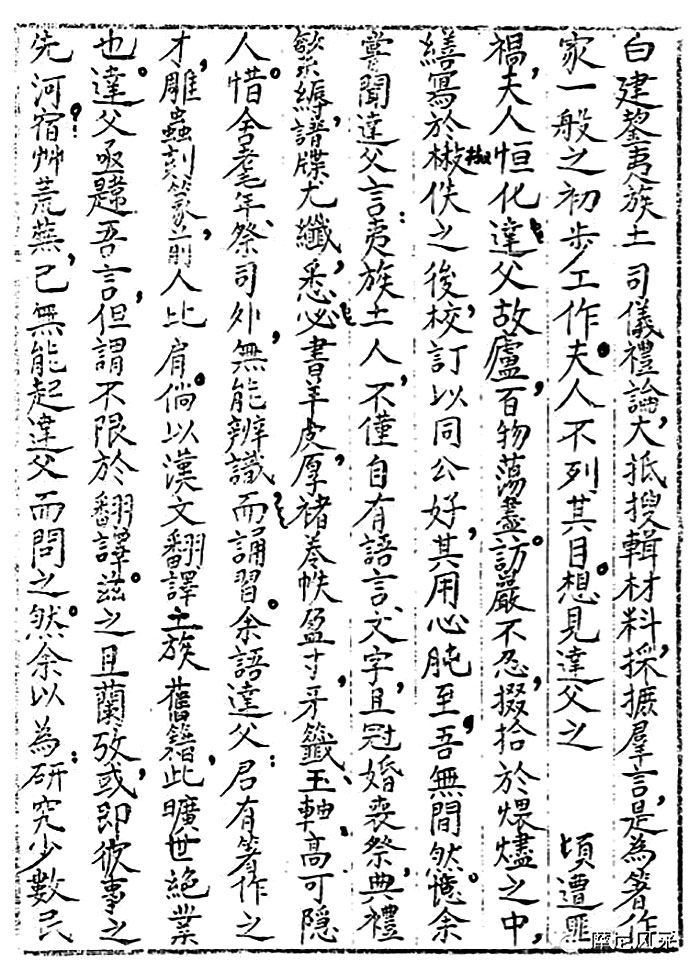 白建鋆夷族土司儀禮論，大抵搜輯材料，採摭羣言，是為著作
家一般之初步工作。夫人不列其目。想見達父之　頃遭匪
禍，夫人恒化，達父故廬，百物蕩盡。訪嚴不忍，掇拾於煨燼之中，
繕寫於散佚之後，校訂以同公好，其用心肫至，吾無間然。憶余
嘗聞達父言：夷族土人，不僅自有語言文字，且冠婚喪祭，典禮
縟，譜牒尤纖悉必書，羊皮厚褚，卷帙盈寸，牙籤玉軸，高可隱
人。惜舍耄年祭司外，無能辨識而誦習。余語達父：君有著作之
才，雕蟲刻篆，前人比肩。倘以漢文翻譯土族舊籍，此曠世絕業
也。達父亟韙吾言，但謂不限於翻譯。茲之且蘭攷，或即彼事之
先河。宿艸荒蕪，已無能起達父而問之。然余以為：研究少數民
摩尼风采